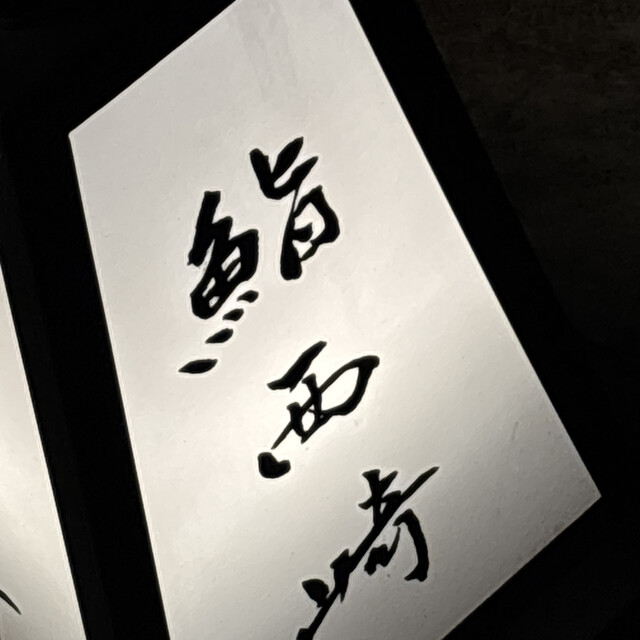 鮨西崎